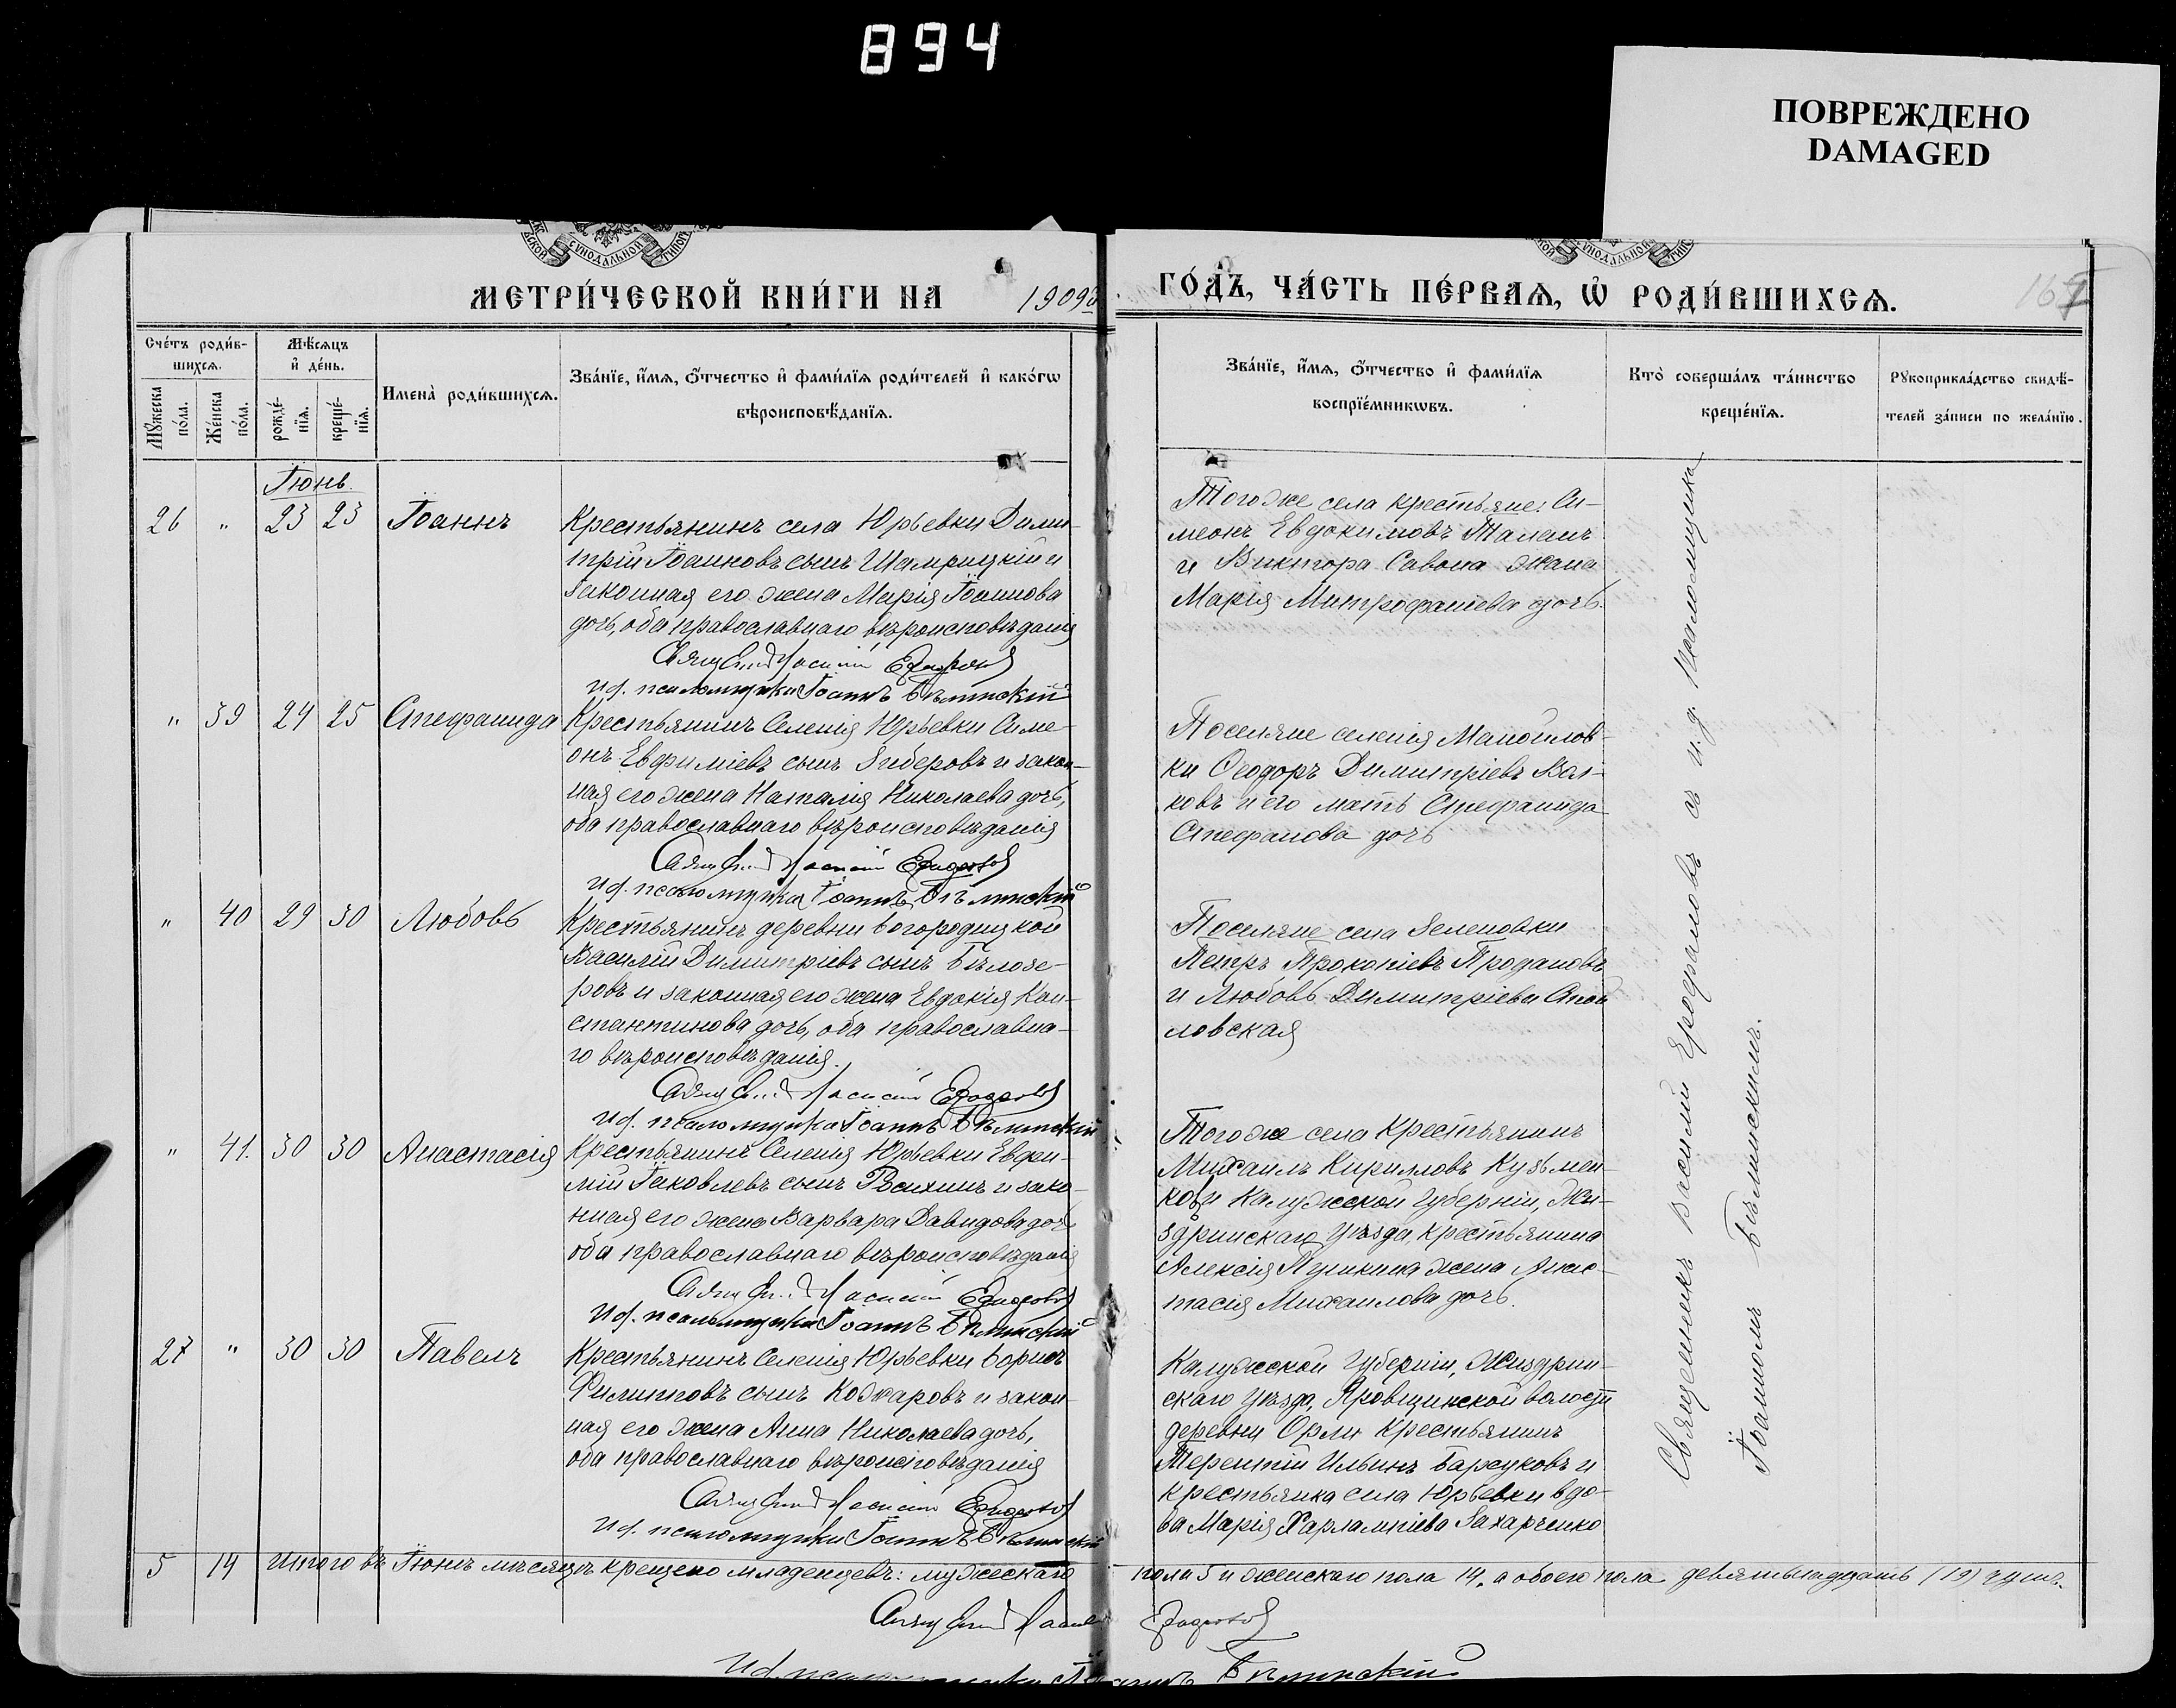 894
ПОВРЕЖДЕНО
DAMAGED
МЕТРИ́ЧЕСКОЙ КНИ́ГИ НА 1909й
ГО́ДЪ, ЧА́СТЬ ПЕ́РВАѦ, Ѡ҆ РОДИ́ВШИХСѦ.
Сче́тъ роди́в-
шихсѧ.
Мѣ́сѧцъ
и҆ де́нь.
Мꙋ́жеска
по́ла.
Же́нска
по́ла.
рожде́-
нїѧ.
креще́-
нїѧ.
Имена̀ роди́вшихсѧ.
Зва́нїе, и҆́мѧ, ѻ҆́тчество и҆ фами́лїѧ роди́телей и҆ како́гѡ
вѣроисповѣ́данїѧ.
Зва́нїе, и҆́мѧ, ѻ҆́тчество и҆ фами́лїѧ
воспрїе́мникѡвъ.
Кто̀ соверша́лъ та́инство
креще́нїѧ.
Рꙋкоприкла́дство свидѣ́-
телей за́писи по жела́нїю.
Іюнь.
26 " 23 23 Іоаннъ
Крестьянинъ села Юрьевки Дими-
трій Іоанновъ сынъ Шамрицкій и
законная его жена Марія Іоаннова
дочь, оба православнаго вѣроисповѣданія
Василій
И.д. псаломщика Іоаннъ Бѣлинскій
Того же села крестьяне: Си-
меонъ Евдокимовъ Таланъ
и Виктора Савона жена
Марія Митрофанева дочь.
" 39 24 25 Стефанида
Крестьянинъ Селенія Юрьевки Симе-
онъ Евфиміевъ сынъ Зиберовъ и закон-
ная его жена Наталія Николаева дочь,
оба православнаго вѣроисповѣданія
Василій
И.д. псаломщика Іоаннъ Бѣлинскій
Поселяне селенія Манойлов-
ки Ѳеодоръ Димитріевъ Вол-
ковъ и его мать Стефанида
Стефанова дочь
" 40 29 30 Любовь
Крестьянинъ деревни Богородицкой
Василій Димитріевъ сынъ Бѣлозе-
ровъ и законная его жена Евдокія Кон-
стантинова дочь, оба православна-
го вѣроисповѣданія.
Василій
И.д. псаломщика Іоаннъ Бѣлинскій
Поселяне села Зеленовки
Петръ Прокопіевъ Продановъ
и Любовь Димитріева
ловская
" 41. 30 30 Анастасія
Крестьянинъ Селенія Юрьевки Евфи-
мій Іаковлевъ сынъ и зако-
нная его жена Варвара Давидова дочь
оба православнаго вѣроисповѣданія
Василій
И.д. псаломщика Іоаннъ Бѣлинскій
Того же села крестьянинъ
Михаилъ Кирилловъ Кузьмен-
ко и Калужской Губерніи, Жи-
здринскаго Уѣзда, крестьянина
Алексія жена Анас-
тасія Михаилова дочь.
27 " 30 30 Павелъ
Крестьянинъ Селенія Юрьевки Борисъ
Филипповъ сынъ Кожаровъ и закон-
ная его жена Анна Николаева дочь,
оба православнаго вѣроисповѣданія
Василій
И.д. псаломщика Іоаннъ Бѣлинскій
Калужской Губерніи, Жиздрин-
скаго Уѣзда, Яровщинской волости
деревни Орли крестьянинъ
Терентій Ильинъ Барсуковъ и
крестьянка села Юрьевки вдо-
ва Марія Харлампіева Захарченко
Священникъ Василій съ и.д. псаломщика
Іоанномъ Бѣлинскимъ.
5 14 Итого въ Іюнѣ мѣсяцѣ крещено младенцевъ: мужескаго пола 5 и женскаго пола 14, а обоего пола девятьнадцать (19) душъ.
И.д. псаломщика Іоаннъ Бѣлинскій